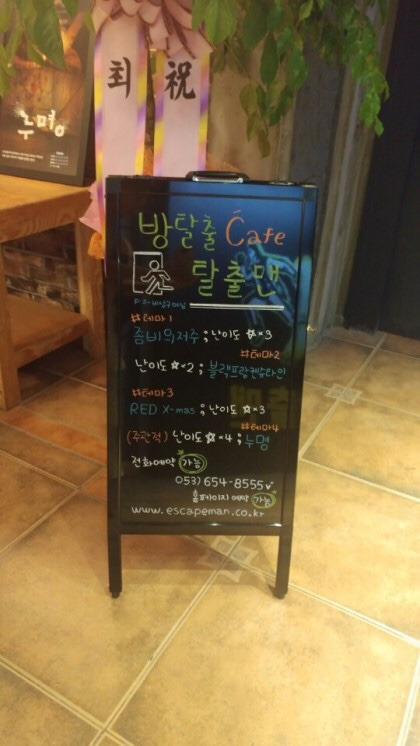 최 祝
누명
방탈출 Cafe
탈출맨
#테마1
좀비의저주 ; 난이도 ☆×3
#테마2
난이도 ☆×2 ; 블랙프랑켄슈타인
#테마3
RED X-mas ; 난이도 ☆×3
#테마4
(주관적) 난이도 ☆×4 ; 누명
전화예약 가능
053) 654-8555
홈페이지 예약 가능
www.escapeman.co.kr